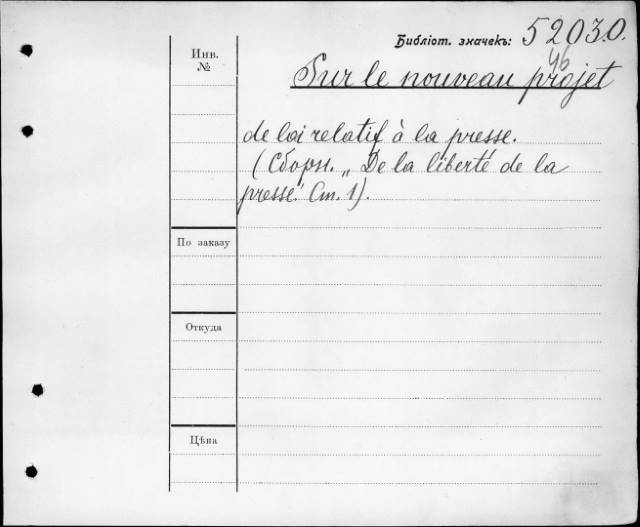 Библіот. значекъ: 52030.
46
Инв.
№
Sur le nouveau projet
de loi relatif à la presse.
(Сборн. „De la liberté de la
presse". Ст. 1).
По заказу
Откуда
Цѣна